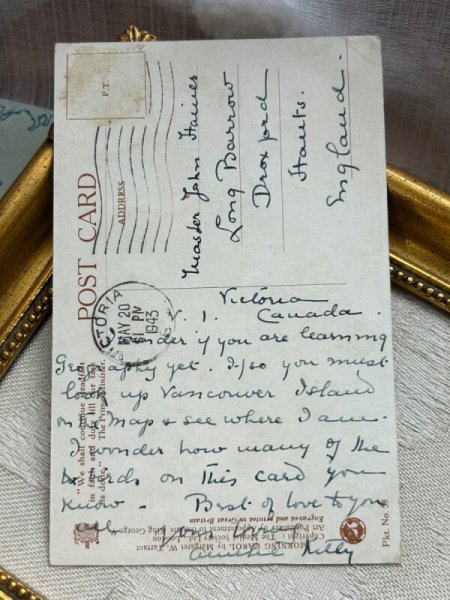 P.T.
POST CARD
ADDRESS
Master John Haines
Long Barrow
Droxford
Hants.
England.
VICTORIA
MAY 20
PM
1943
Victoria
V. I. Canada.
I wonder if you are learning
Geography yet. If so you must
look up Vancouver Island
on the map & see where I am.
I wonder how many of the
birds on this card you
know. Best of love to you
all from
Auntie Kitty
"We shall continue steadfast
in faith and duty till our task
is done." The Prime Minister.
MORNING CAROL by Margaret W. Tarrant
Copyright: The Medici Society Ltd. London
Art Publishers by Appointment to the late King George V
Engraved and printed in Great Britain
Pkt. No.